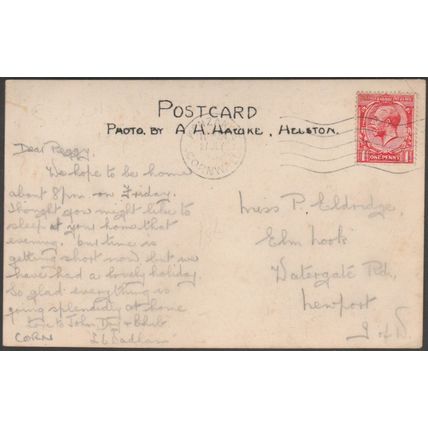 POSTCARD
PHOTO. BY A. H. HAWKE, HELSTON.
ONE PENNY
CORNWALL
Dear Peggy,
We hope to be home
about 8pm on Friday.
Thought you might like to
sleep at your home that
evening. Our time is
getting short now but we
have had a lovely holiday.
So glad everything is
going splendidly at home
Love to John, &
CORN
Miss P. Eldridge
Elm
Watergate Rd,
Newport
I of W.